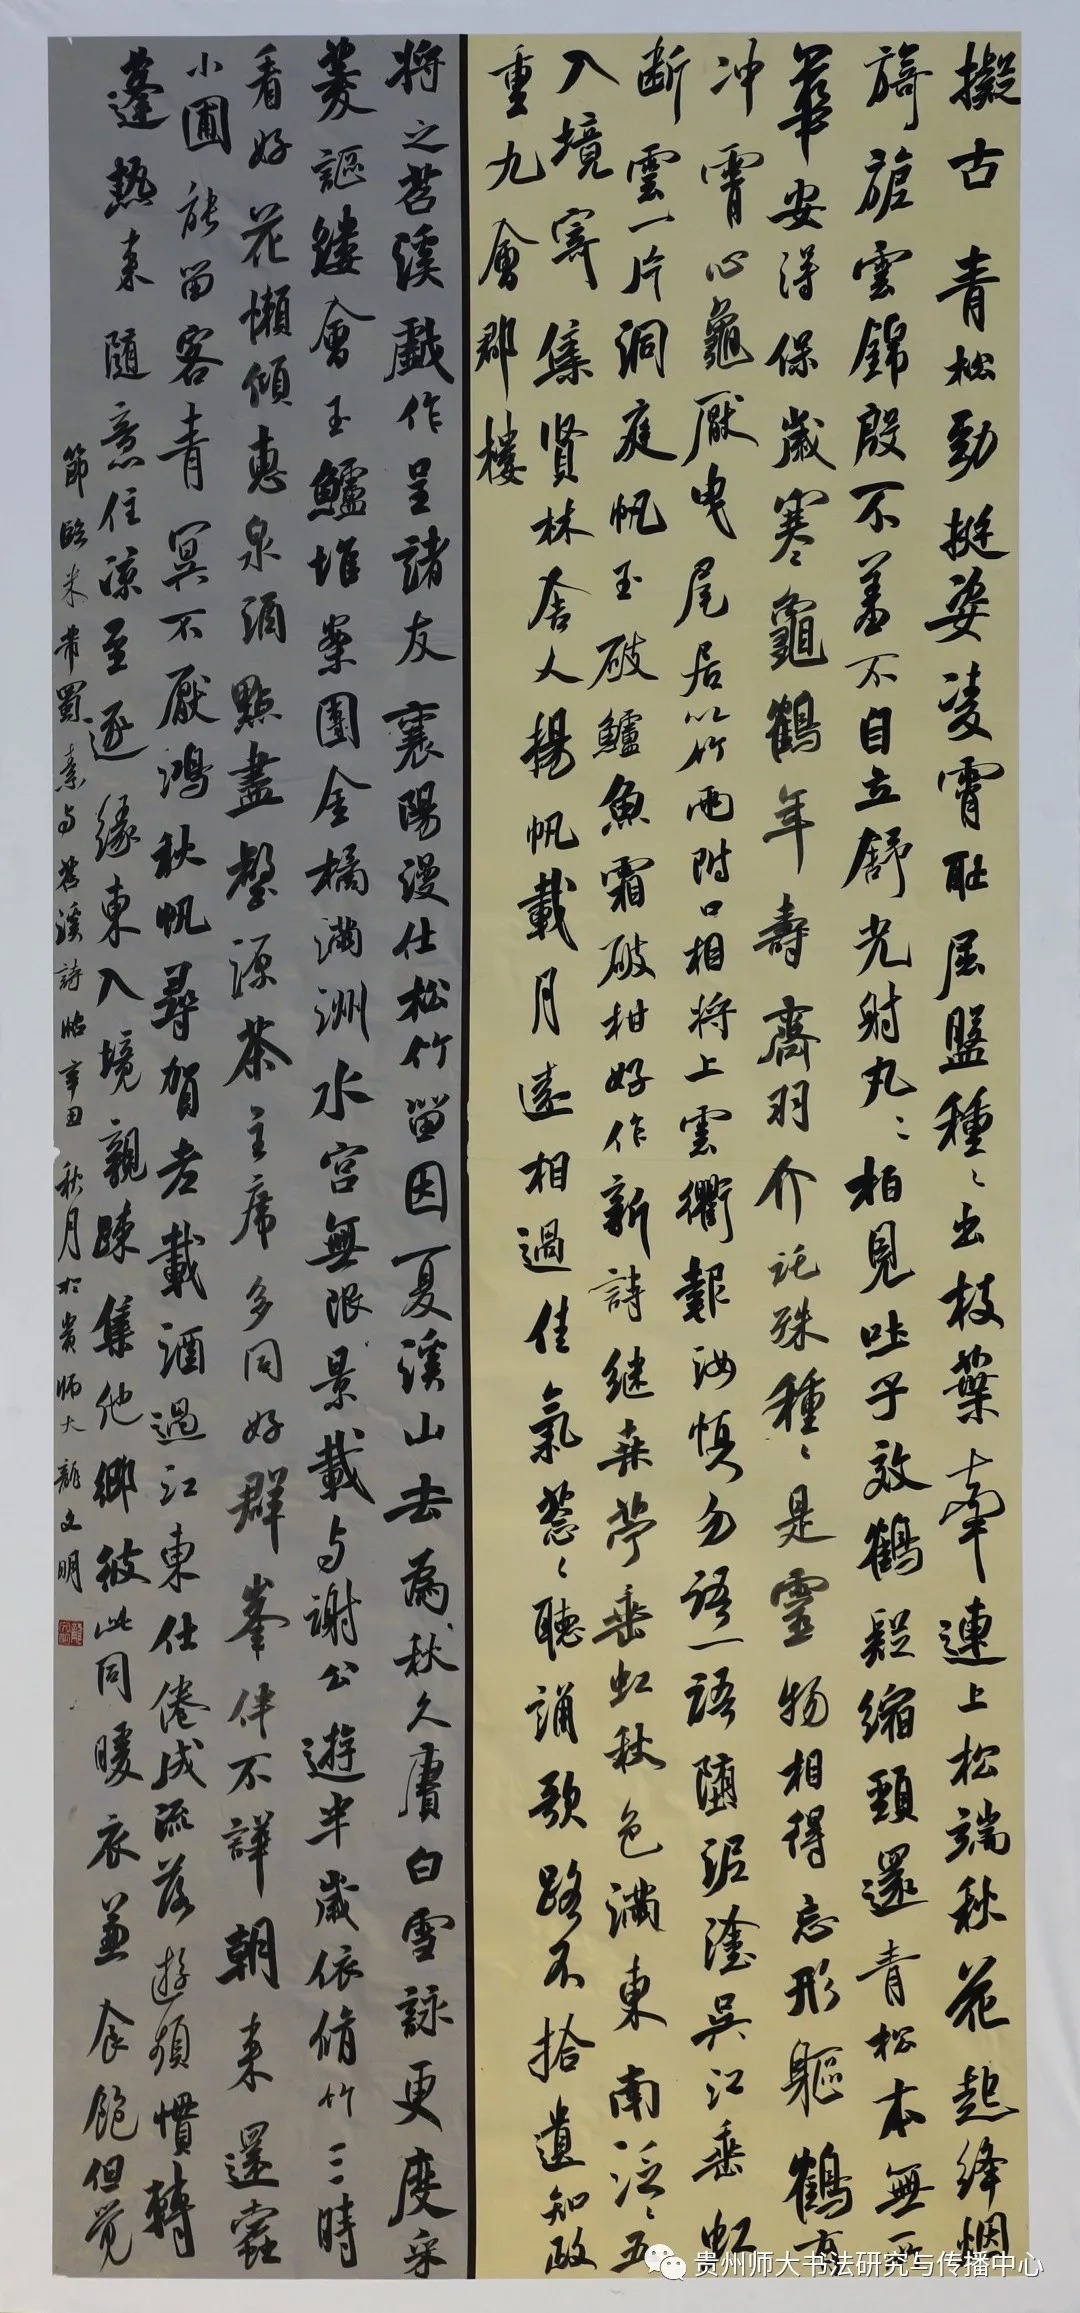 擬古 青松勁挺姿凌霄恥屈盤種〻出枝葉牽連上松端秋花起絳烟
旖旎雲錦殷不羞不自立舒光射丸〻柏見吐子效鶴疑縮頸還青松本無
華安得保歲寒龜鶴年壽齊羽介託殊種〻是靈物相得忘形軀鶴有
冲霄心龜厭曳尾居以竹兩附口相將上雲衢報汝慎勿語一語墮泥塗吳江垂虹
断雲一片洞庭帆玉破鱸魚霜破柑好作新詩継桑苧垂虹秋色滿東南泛〻五
入境寄集賢林舍人揚帆載月遠相過佳氣葱〻聽誦歌路不拾遺知政
重九會郡樓
將之苕溪戲作呈諸友襄陽漫仕松竹留因夏溪山去為秋久賡白雪詠更度采
菱謳縷會玉鱸堆案團金橘滿洲水宮無限景載与謝公遊半歲依脩竹三時
看好花懶傾惠泉酒點盡壑源茶主席多同好群峯伴不譁朝來還蠹
小圃能留客青冥不厭鴻秋帆尋賀老載酒過江東仕倦成流落遊頻慣轉
蓬熱來隨意住涼至逐緣東入境親疎集他鄉彼此同暖衣兼食飽但覺
節臨米芾蜀素与苕溪詩帖辛丑秋月於貴師大龍文明
贵州师大书法研究与传播中心